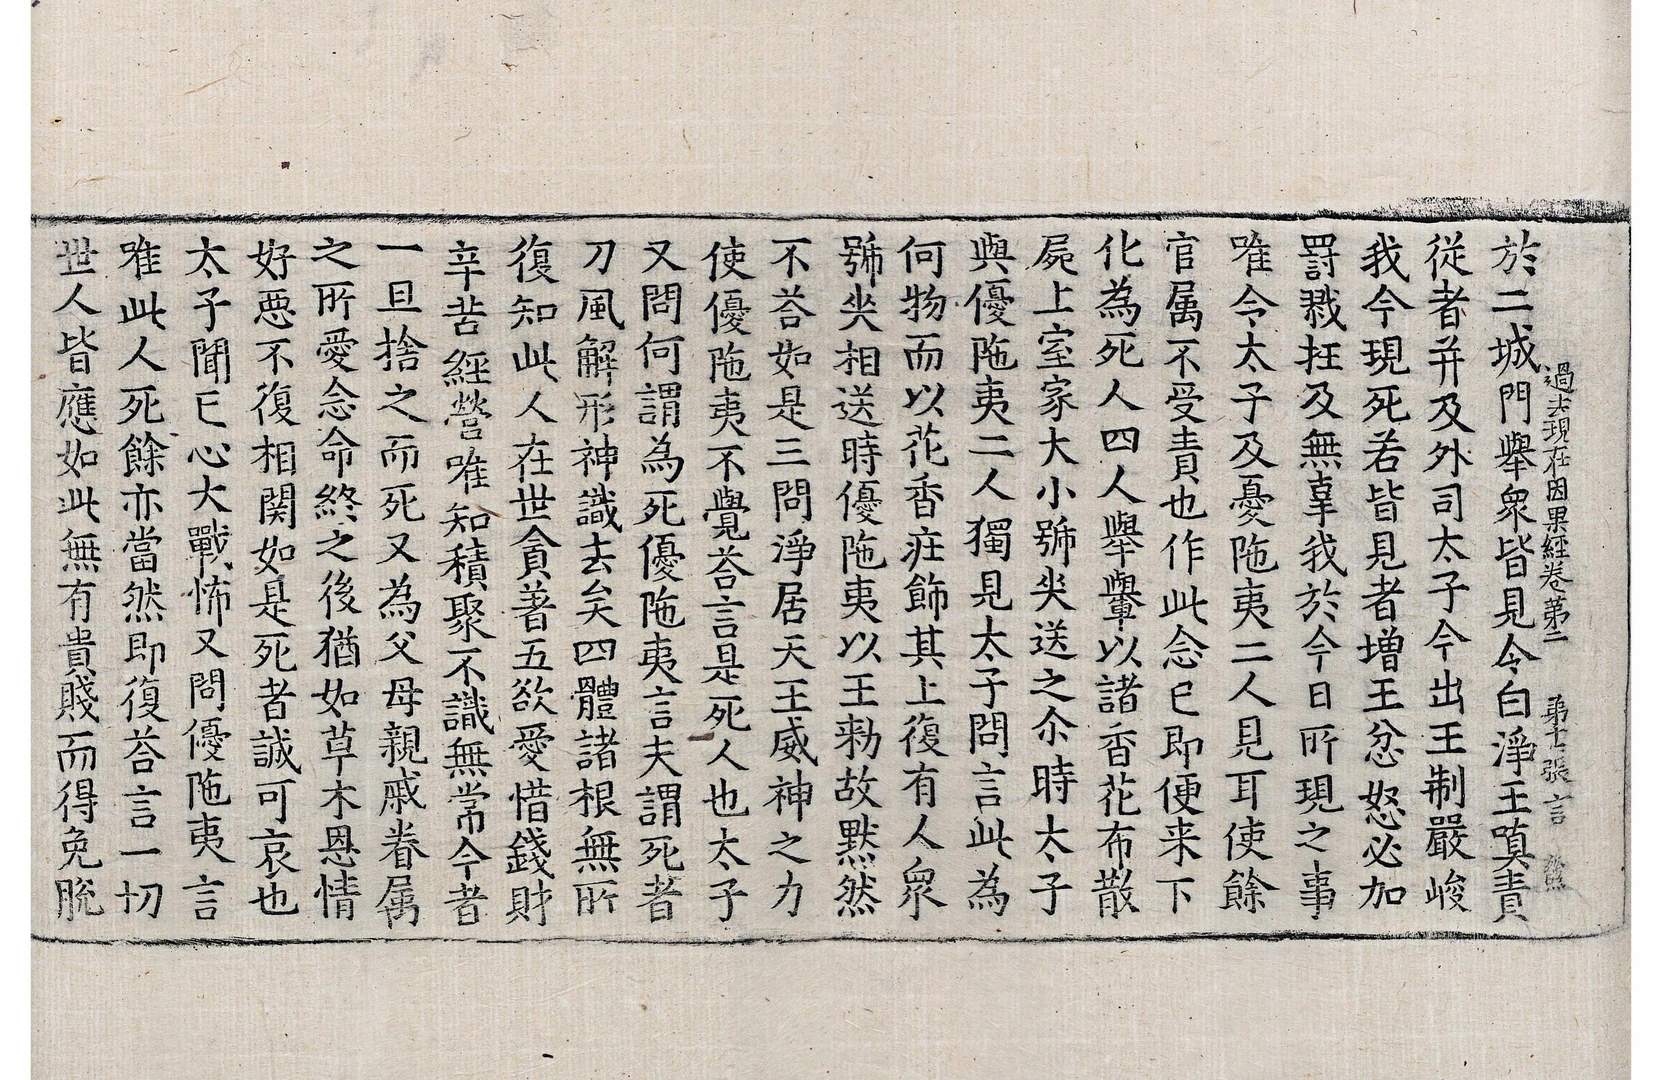 過去現在因果經卷第二　第十二張　言
於二城門舉衆皆見令白淨王嗔責
從者并及外司太子今出王制嚴峻
我今現死若皆見者增王忿怒必加
罸戮抂及無辜我於今日所現之事
唯令太子及憂陁夷二人見耳使餘
官属不受責也作此念已即便来下
化為死人四人舉轝以諸香花布散
屍上室家大小號哭送之尒時太子
與優陁夷二人獨見太子問言此為
何物而以花香庄飾其上復有人衆
號哭相送時優陁夷以王勑故默然
不荅如是三問淨居天王威神之力
使優陁夷不覺荅言是死人也太子
又問何謂為死優陁夷言夫謂死者
刀風解形神識去矣四體諸根無所
復知此人在世貪著五欲愛惜錢財
辛苦經營唯知積聚不識無常今者
一旦捨之而死又為父母親戚眷属
之所愛念命終之後猶如草木恩情
好惡不復相関如是死者誠可哀也
太子聞已心大戰怖又問優陁夷言
唯此人死餘亦當然即復荅言一切
世人皆應如此無有貴賤而得免脫